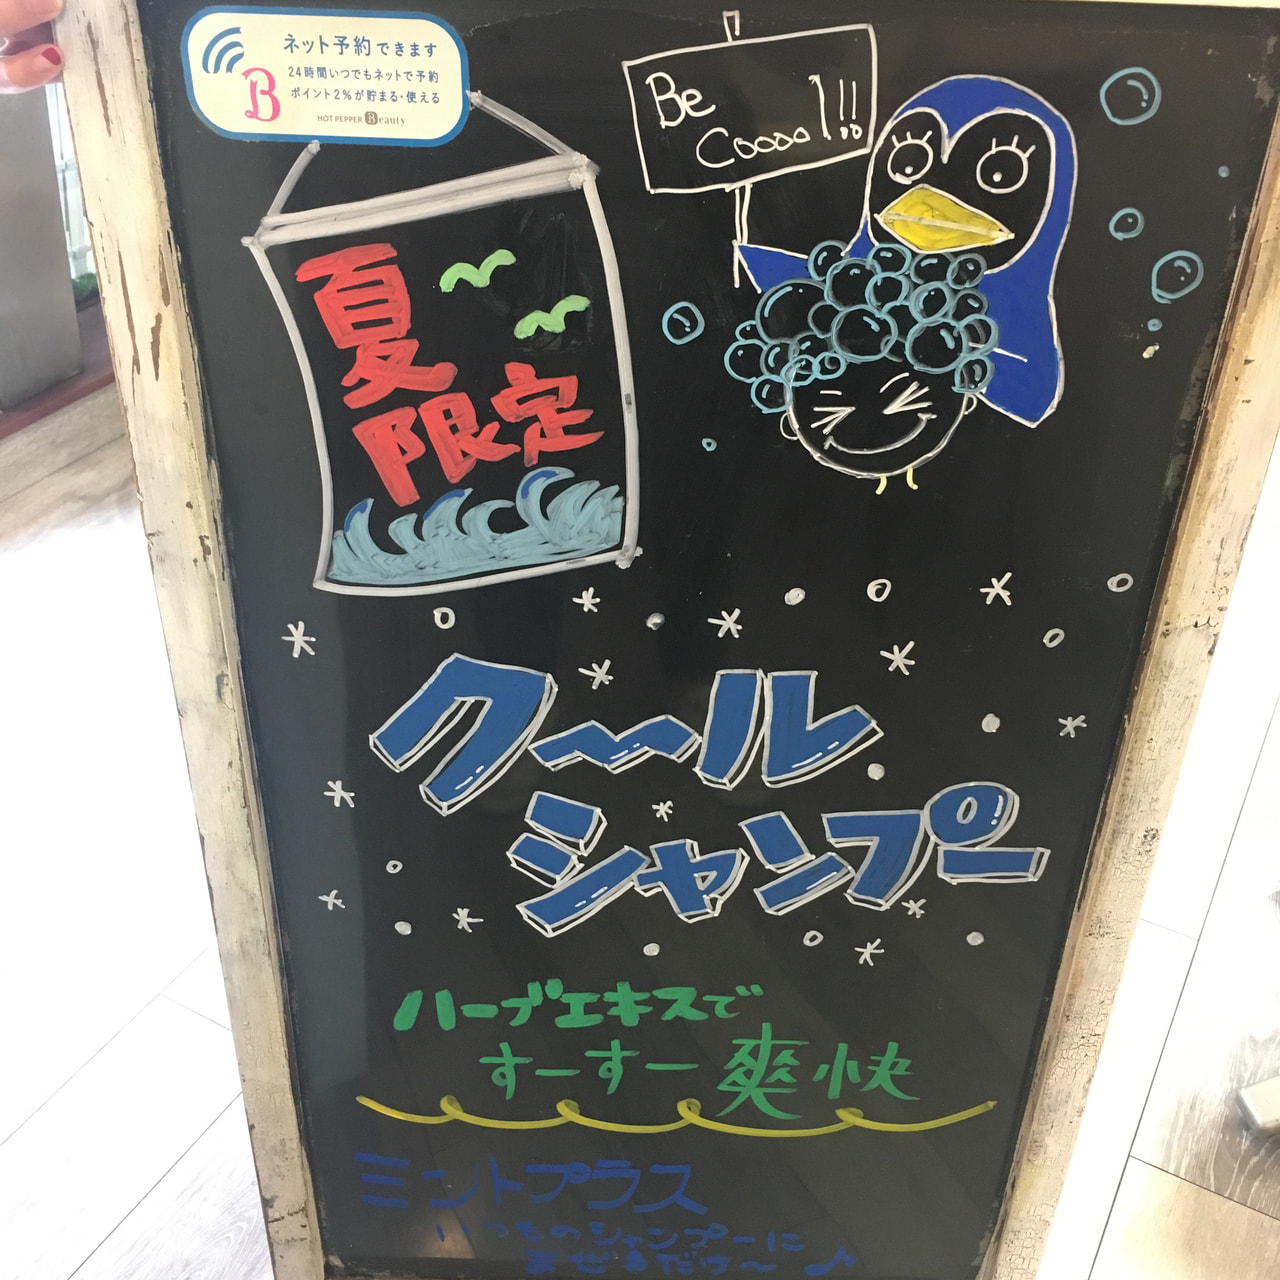 ネット予約できます
24時間いつでもネットで予約
ポイント2%が貯まる・使える
HOT PEPPER Beauty
B
Be
Cooool!!!
夏
限定
クール
シャンプー
ハーブエキスで
すーすー爽快
ミントプラス
いつものシャンプーに
まぜるだけ〜♪